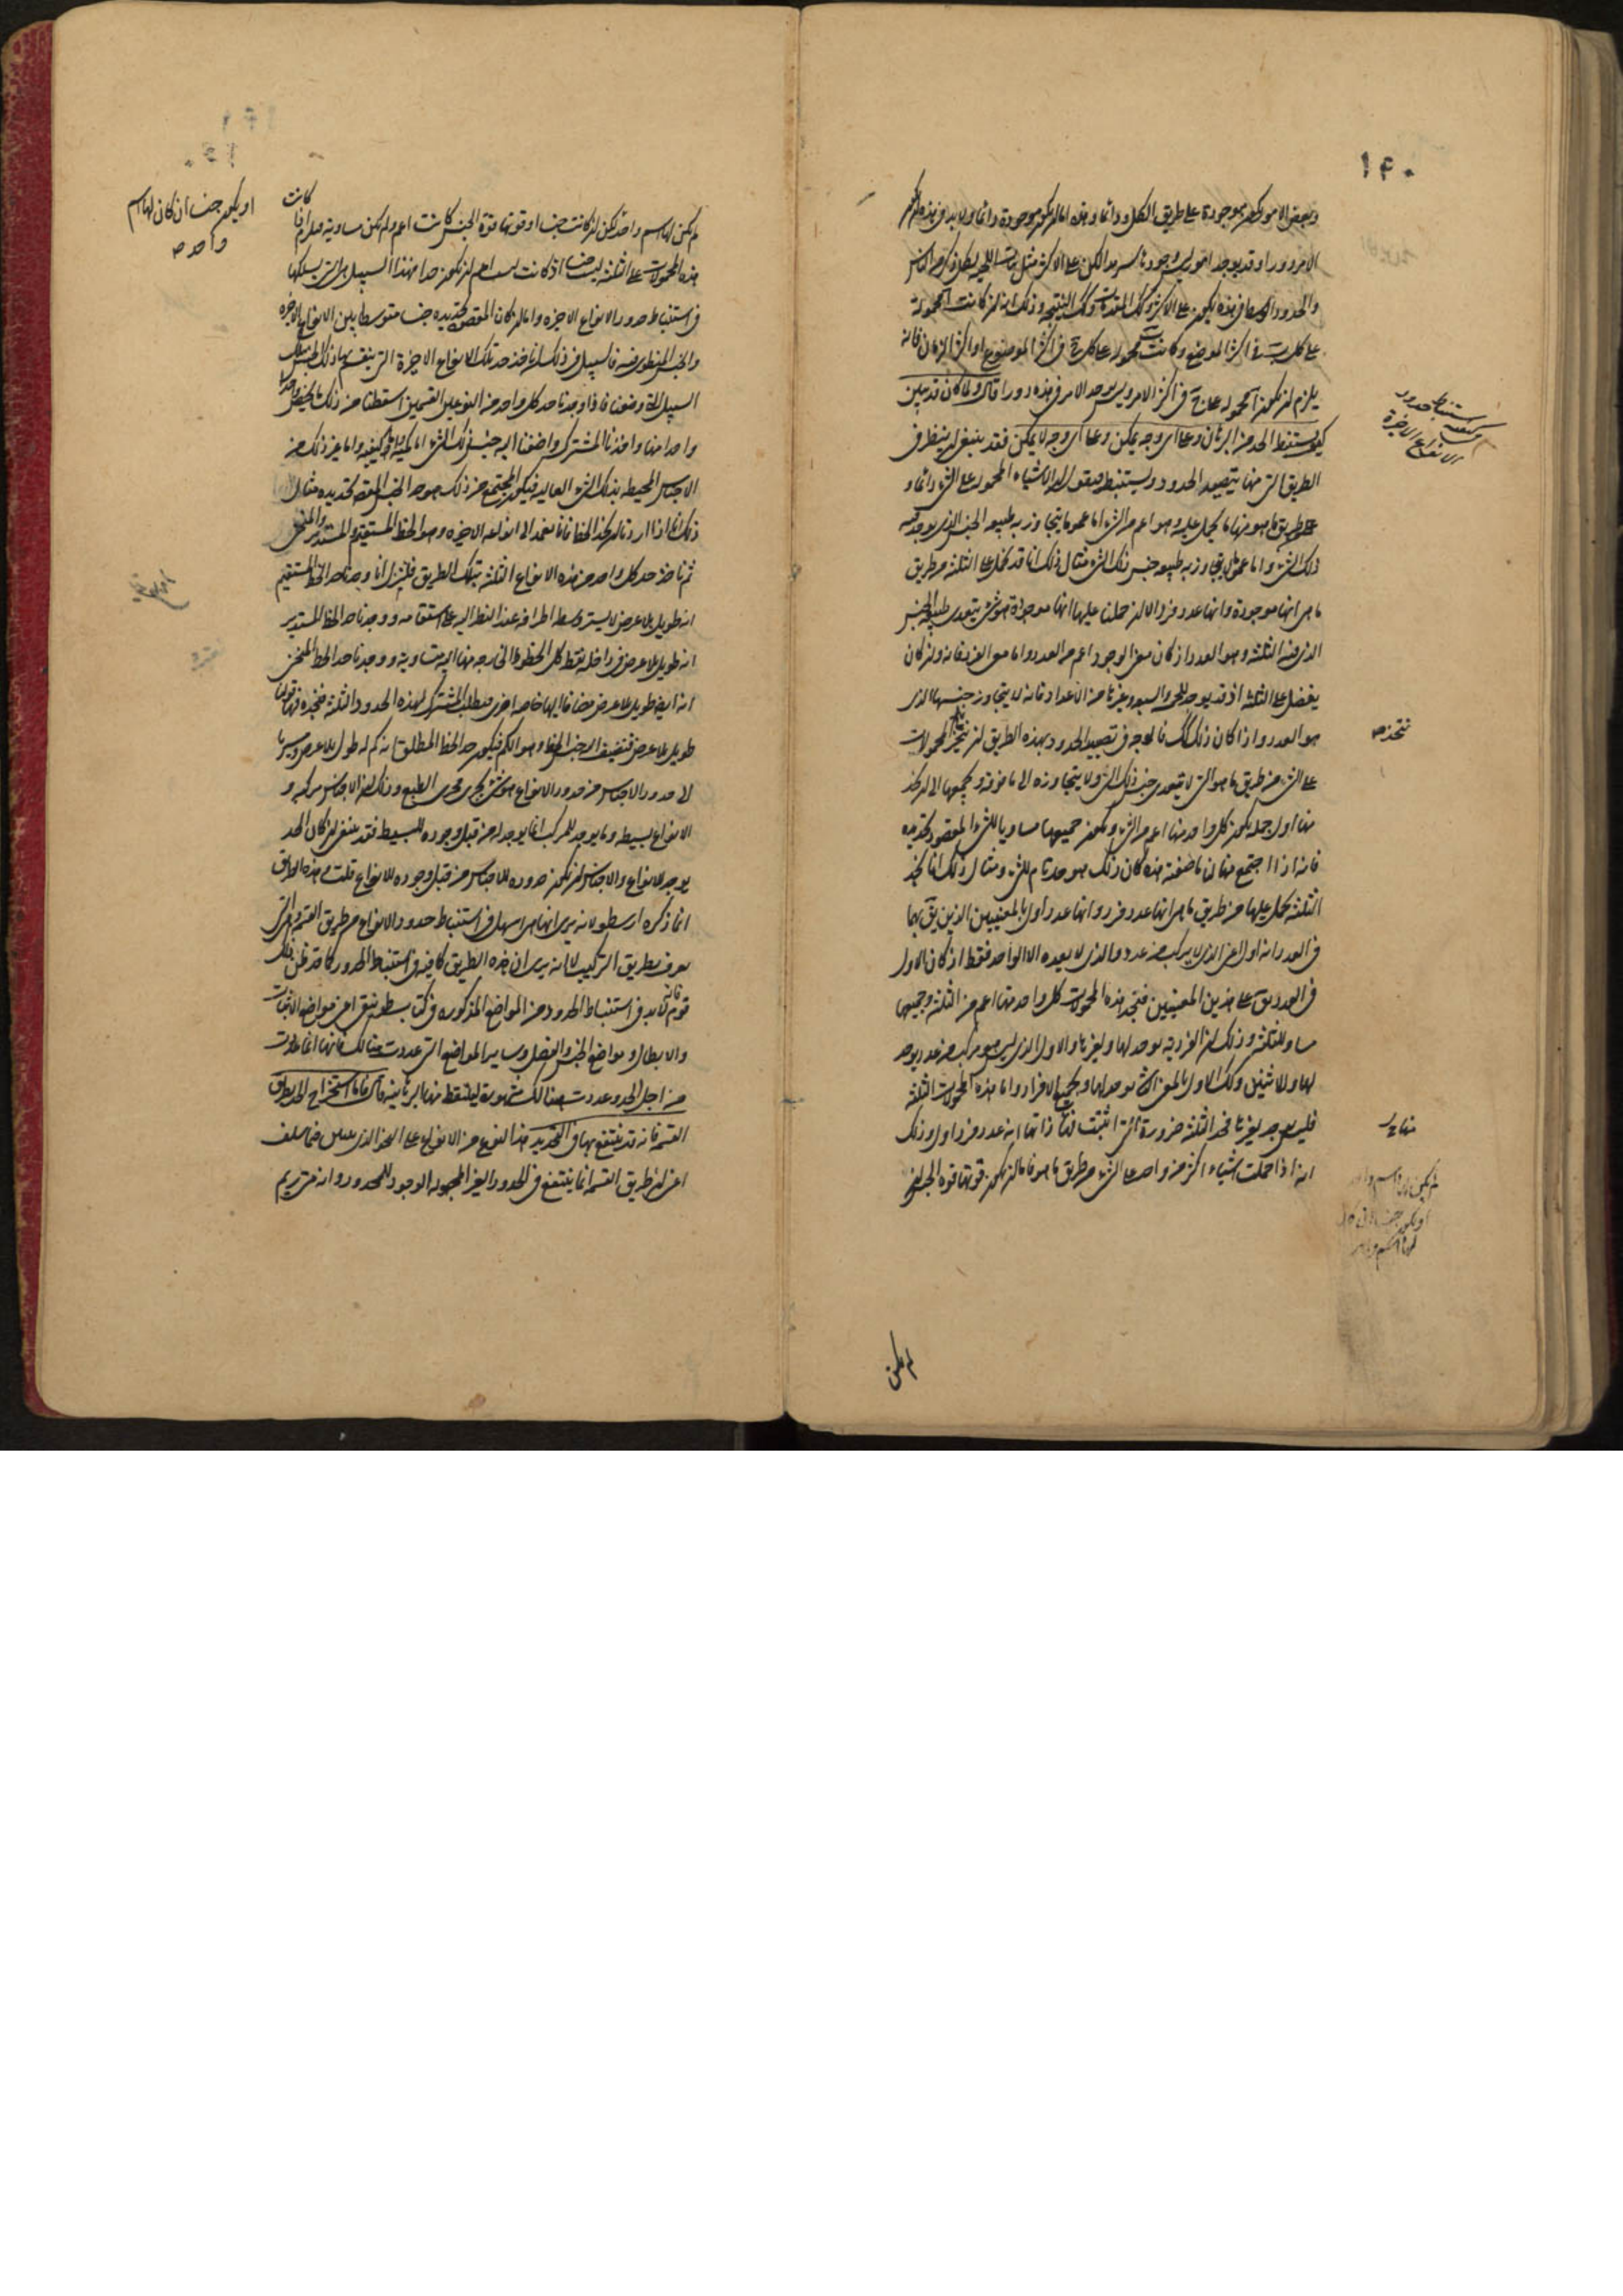 ١٤٠
وبعض الامور يكون موجودة على طريق الكل ودائما وهذه اما ان يكون موجودة دائما ولا بد في هذه ان يكون
الامر دورا وقد يوجد امور ليس وجودها سرمدا لكن على الاكثر مثل نبات اللحية لكل ذكر من الناس
والحدود الاوساط في هذه يكون على الاكثر وكذلك المقدمات وكذلك النتيجة وذلك انه ان كانت آ محمولة
على كل ب في اكثر الموضوع وكانت ب محمولة على كل ج في اكثر الموضوع او اكثر الزمان فانه
يلزم ان يكون آ محمولة على ج في اكثر الامر وليس يوجد الامر في هذه دورا قال ولما كان قد تبين
كيف يستنبط الحد من البرهان وعلى اي وجه يمكن وعلى اي وجه لا يمكن فقد ينبغي ان ينظر في
الطريق التي منها يتصيد الحدود ويستنبط فنقول ان الاشياء المحمولة على الشيء دائما و
على طريق ما هو منها ما يحمل عليه وهو اعم من الشيء اما عموما يتجاوز به طبيعة الجنس الذي يوجد فيه
ذلك الشيء واما عموما لا يتجاوز به طبيعة جنس ذلك الشيء مثال ذلك انا قد نحمل على الثلثة من طريق
ما هي انها موجودة وانها عدد فرد الا ان حملنا عليها انها موجودة هو شيء يتعدى طبيعة الجنس
الذي فيه الثلثة وهو العدد اذ كان معنى الوجود اعم من العدد واما معنى الفرد فانه وان كان
يفضل على الثلثة اذ قد يوجد للخمسة والسبعة وغيرها من الاعداد فانه لا يتجاوز جنسها الذي
هو العدد واذا كان ذلك كذلك فالوجه في تصيد الحدود بهذه الطريق ان نتخير المحمولات
على الشيء من طريق ما هو التي لا تتعدى جنس ذلك الشيء ولا يتجاوزه الى ما فوقه ونجمعها الى ان نجد
منها اول جملة يكون كل واحد منها اعم من الشيء ويكون جميعها مساويا للشيء المقصود تحديده
فانه اذا اجتمع منها ما صفته هذه كان ذلك هو حد تام للشيء ومثال ذلك انا نجد
الثلثة يحمل عليها من طريق ما هي انها عدد فرد وانها عدد اول بالمعنيين الذين يق بهما
في العدد انه اول اعني الذي لا يركب من عدد والذي لا يعده الا الواحد فقط اذ كان الاول
في العدد يق على هذين المعنيين فتجد هذه المحمولات كل واحد منها اعم من الثلثة وجميعها
مساو للثلثة وذلك ان الفردية توجد لها ولغيرها والاول الذي ليس هو مركب من عدد يوجد
لها وللاثنين وكذلك الاول بالمعنى الثاني يوجد لها ولجميع الافراد واما هذه المحمولات الثلثة
فليس يوجد لغيرها فحد الثلثة ضرورة التي اثبتت لنا ذاتها انه عدد فرد اول وذلك
انه اذا حملت اشياء اكثر من واحد على الشيء من طريق ما هو فاما ان يكون قوتها قوة الجنس ان
وكيفية استنباط حدود
الانواع الاخيرة
نتخذ
لم يكن لها اسم واحد
او يكون جنسا ان كان
لها اسم واحد
لم يكن
كانت
لم يكن لها اسم واحد لكن ان كانت جنسا او قوتها قوة الجنس كانت اعم ولم يكن مساوية
هذه المحمولات على الثلثة ليست جنسا اذ كانت ليست اعم ان يكون حدا فهذا السبيل هي التي يسلكها
في استنباط حدود الانواع الاخيرة واما ان كان المقصود تحديده جنسا متوسطا بين الانواع الاخيرة
والجنس المنظور فيه فالسبيل في ذلك ان ناخذ حد تلك الانواع الاخيرة التي ينقسم بها ذلك الجنس بتلك
السبيل التي وصفنا فاذا وجدنا حد كل واحد من النوعين القسيمين اسقطنا من ذلك ما يخص واحدا
واحدا منها واخذنا المشترك واضفنا اليه جنس ذلك الشيء اما كمية او كيفية واما غير ذلك من
الاجناس المحيطة بذلك الشيء العالية فيكون المجتمع من ذلك هو حد الجنس المقصود تحديده مثال
ذلك انا اذا اردنا ان نحد الخط فانا نعمد الى انواعه الاخيرة وهو الخط المستقيم والمستدير والمنحني
ثم ناخذ حد كل واحد من هذه الانواع الثلثة بتلك الطريق فلننزل انا وجدنا حد الخط المستقيم
انه طويل بلا عرض يستر وسطه اطرافه عند النظر اليه على استقامة ووجدنا حد الخط المستدير
انه طويل بلا عرض في داخله نقطة كل الخطوط التي تخرج منها اليه متساوية ووجدنا حد الخط المنحني
انه ايضا طويل بلا عرض مضافا اليها خاصة اخرى فنطلب المشترك لهذه الحدود الثلثة فنجده فيها قولنا
طويل بلا عرض فنضيف اليه جنس الخط وهو الكم فيكون حد الخط المطلق انه كم له طول بلا عرض وسيرنا
الى حدود الاجناس من حدود الانواع هو شيء يجري مجرى الطبع وذلك ان الاجناس مركبة و
الانواع بسيطة وما يوجد للمركب انما يوجد له من قبل وجوده للبسيط فقد ينبغي ان كان الحد
يوجد للانواع والاجناس ان يكون حدوده للاجناس من قبل وجوده للانواع قلت وهذه الطريق
انما ذكره ارسطو لانه يرى انها هي اسهل في استنباط حدود الانواع من طريق القسمة وهي التي
يعرف بطريق التركيب لا انه يرى ان هذه الطريق كافية في استنباط الحدود كما قد ظن ذلك
قوم فانه لا بد في استنباط الحدود من المواضع المذكورة في كتاب طوبيقى اعني مواضع الاثبات
والابطال ومواضع الجنس والفصل وسائر المواضع التي عددت هنالك فانها انما عددت
من اجل الحد وعددت هنالك مشهورة ليلتقط منها البرهانية قال فاما استخراج الحد بطريق
القسمة فانه قد ينتفع بها في التحديد هذا النوع من الانواع على النحو الذي تبين فيما سلف
اعني ان طريق القسمة انما ينتفع في الحدود الغير المجهولة الوجود للمحدود وانه متى يريم
او يكون جنسا ان كان لها اسم
واحد صح